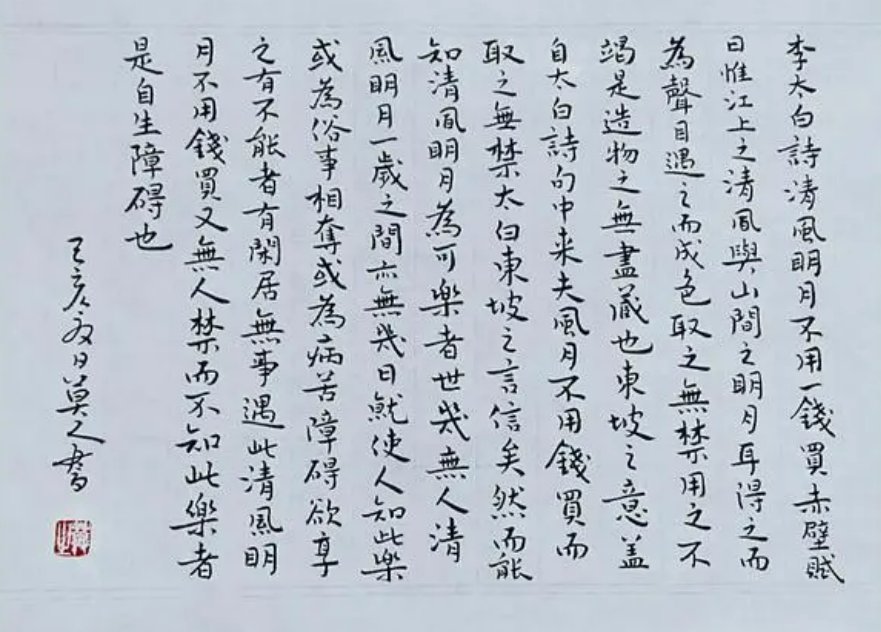 李太白詩清風明月不用一錢買赤壁賦
曰惟江上之清風與山間之明月耳得之而
為聲目遇之而成色取之無禁用之不
竭是造物之無盡藏也東坡之意蓋
自太白詩句中来夫風月不用錢買而
取之無禁太白東坡之言信矣然而能
知清風明月為可樂者世幾無人清
風明月一歲之間亦無幾日就使人知此樂
或為俗事相奪或為病苦障碍欲享
之有不能者有閑居無事遇此清風明
月不用錢買又無人禁而不知此樂者
是自生障碍也
亥夏日莫之書